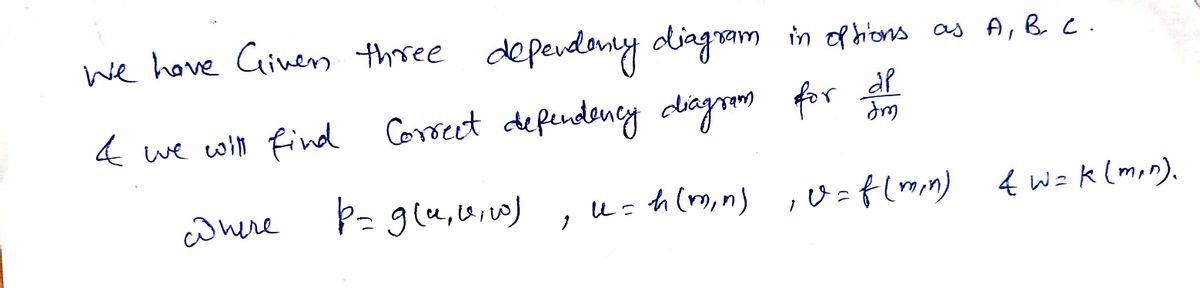 We have Given three dependency diagram in options as A, B C.
& we will find Correct dependency diagram for ∂P/∂m
where p = g(u,v,w) , u = h(m,n) , v = f(m,n) & w = k(m,n).